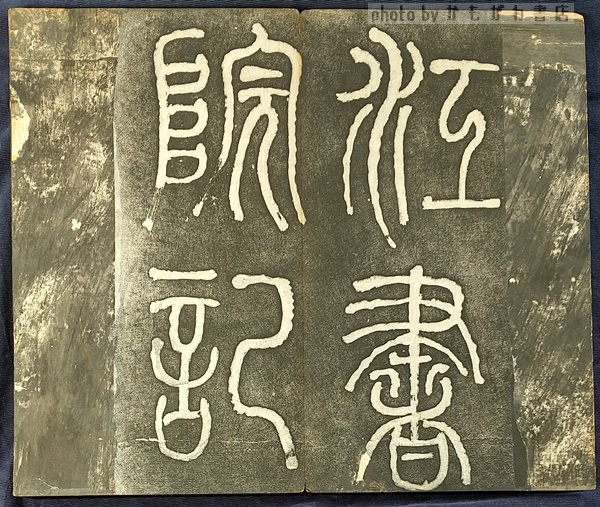 photo by かもがわ書店
江書
院記